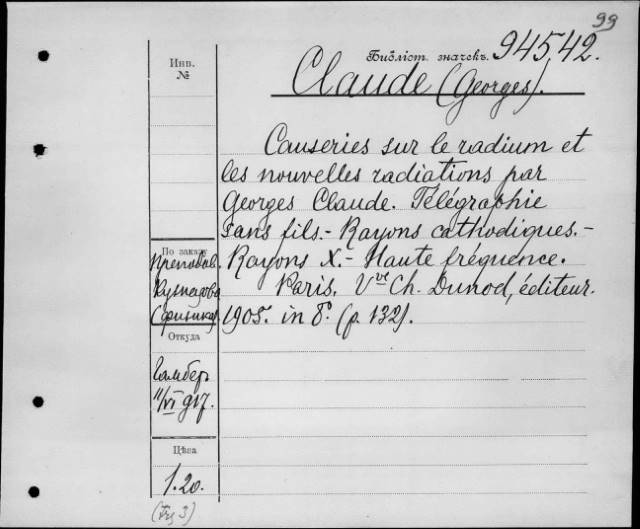 99
Библіот. значекъ. 94542.
Инв.
№
Claude (Georges).
Causeries sur le radium et
les nouvelles radiations par
Georges Claude. Télégraphie
sans fils.- Rayons cathodiques.-
Rayons X.- Haute fréquence.
Paris, Vve Ch. Dunod, éditeur.
1905. in 8° (p. 132).
По заказу
Препоdав.
Кузнецова
(физика)
Откуда
Гамбер
11/VI 917.
Цѣна
1.20.